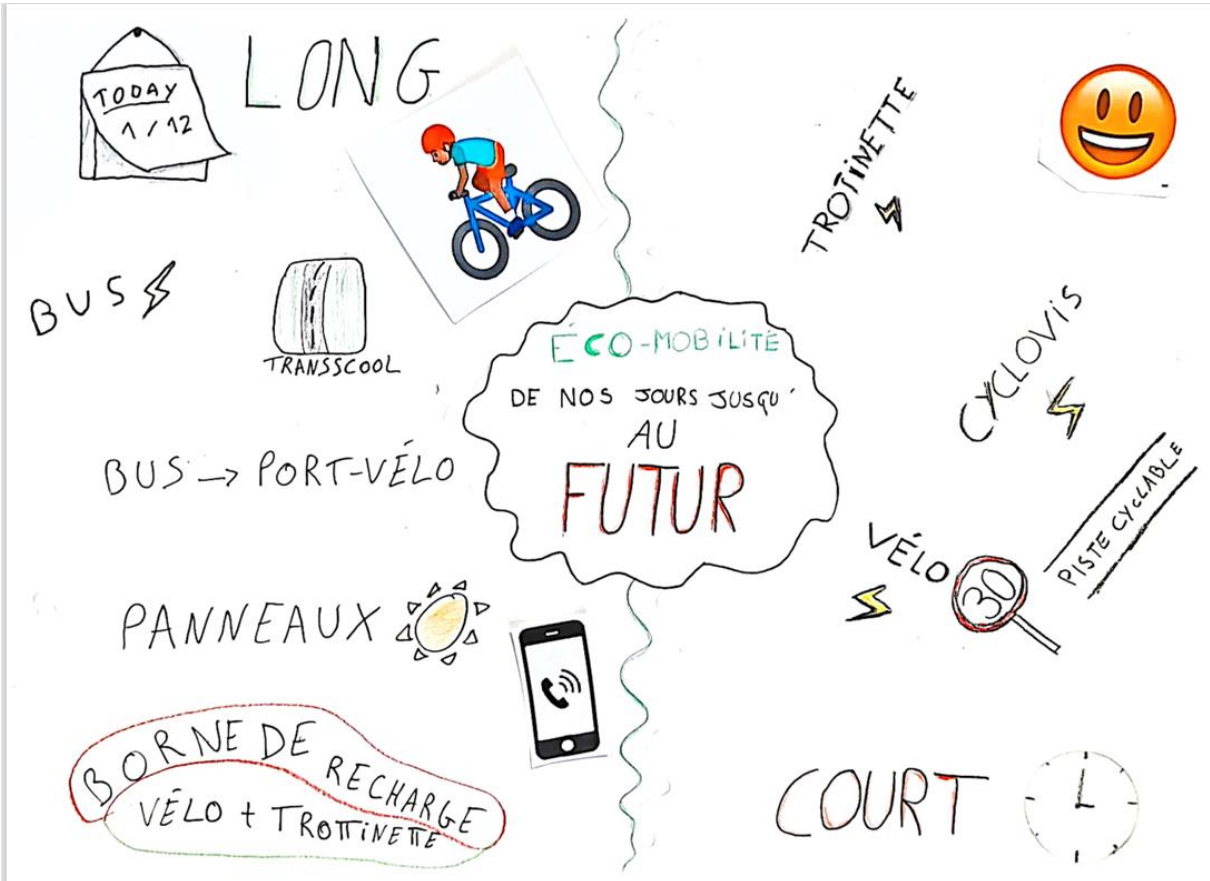 TODAY
1/12
LONG
BUS
TRANSSCOOL
BUS → PORT-VÉLO
PANNEAUX
BORNE DE RECHARGE
VÉLO + TROTTINETTE
ÉCO-MOBILITÉ
DE NOS JOURS JUSQU'
AU
FUTUR
TROTINETTE
CYCLOVIS
VÉLO
30
PISTE CYCLABLE
COURT